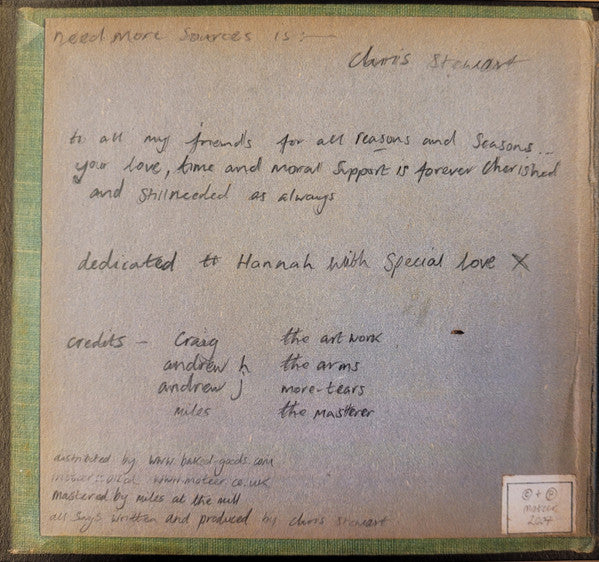 need more sources is :—
Chris Stewart
to all my friends for all reasons and seasons...
your love, time and moral support is forever cherished
and still needed as always
dedicated to Hannah with special love X
credits – Craig the art work
andrew h the arms
andrew j more-tears
miles the masterer
distributed by www.baked-goods.com
www.moteer.co.uk
mastered by miles at the mill
all songs written and produced by chris stewart
© + ℗
moteer
2007